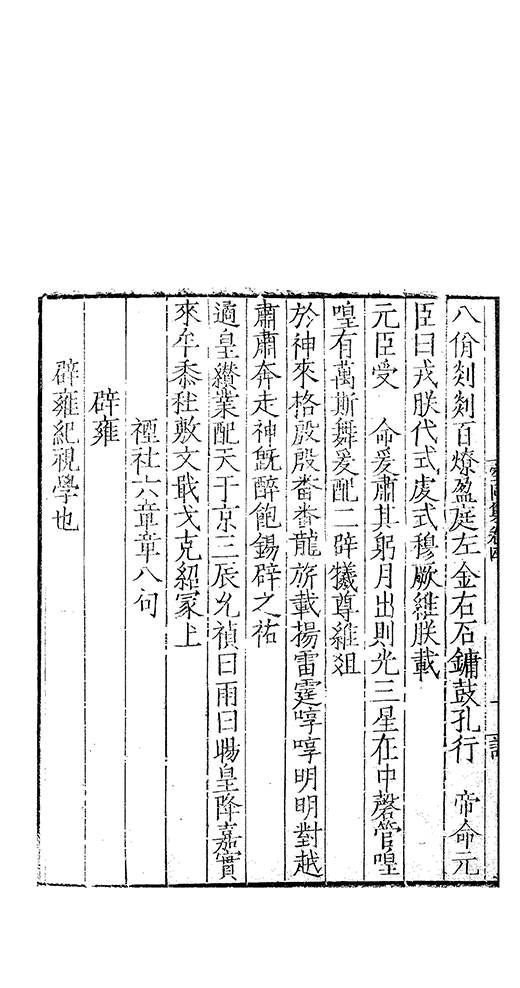 八佾剡剡百燎盈庭左金右石鏞鼓孔行　帝命元
臣曰戎朕代式虔式穆厥維朕載
元臣受　命爰肅其躬月出則光三星在中磬管喤
喤有萬斯舞爰配二辟犧尊維俎
於神來格殷殷畨畨龍旂載揚雷霆啍啍明明對越
肅肅奔走神旣醉飽錫辟之祐
遹皇纉業配天于京三辰允禎曰雨曰暘皇降嘉實
來牟黍秬敷文戢戈克紹冢上
禋社六章章八句
辟雍
辟雍紀視學也